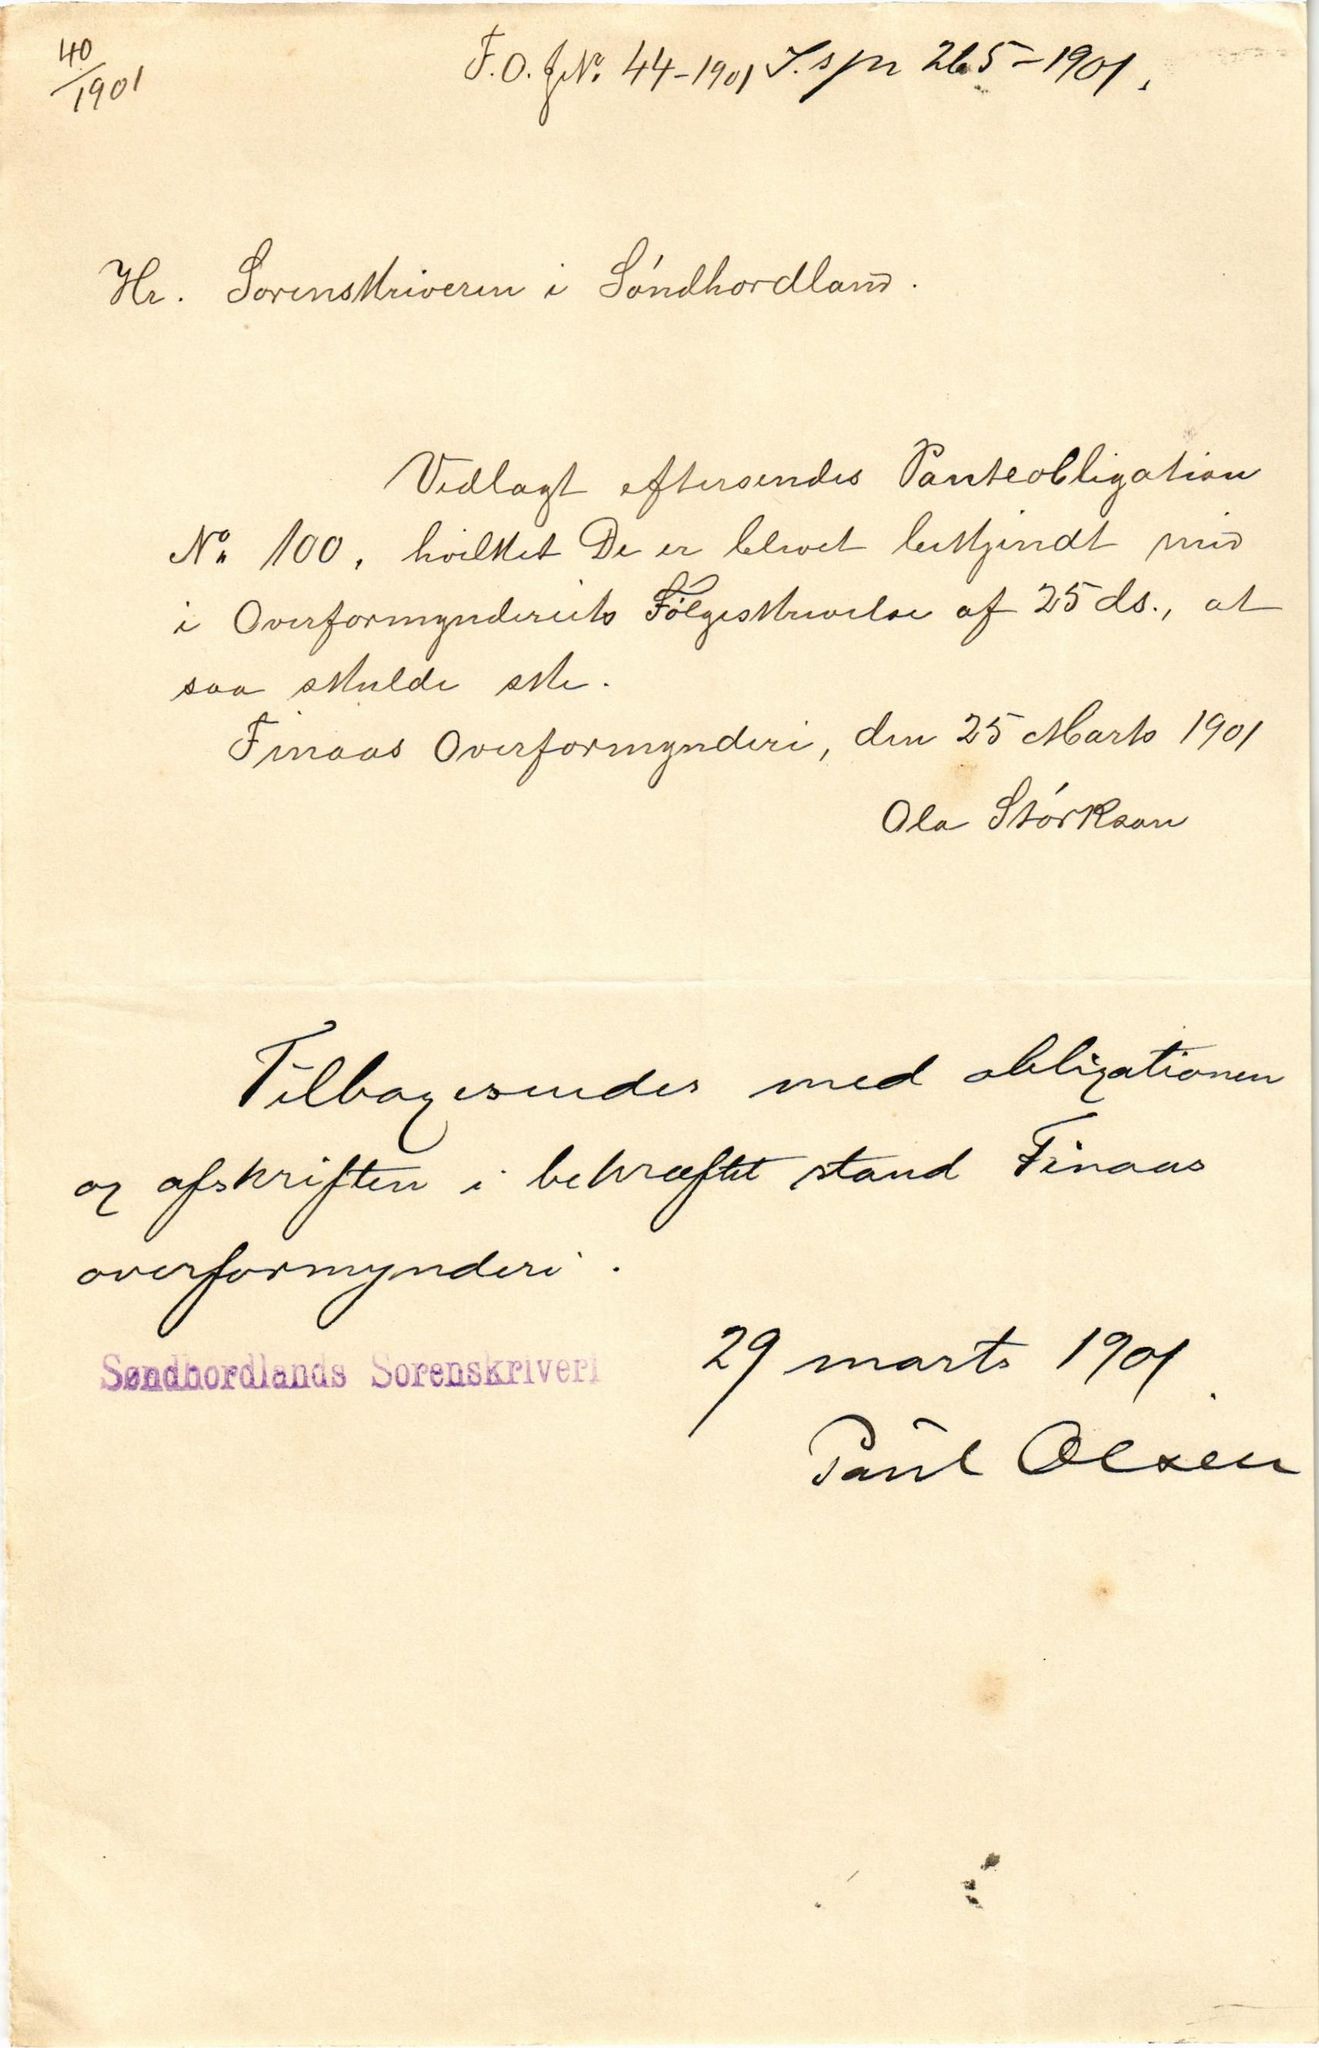 40/1901
F.O. J№ 44-1901 S.s jn 265-1901.
Hr. Sorenskriveren i Søndhordland.
Vedlagt eftersendes Panteobligation
№ 100, hvilket De er blevet bekjendt med
i Overformynderiets Følgeskrivelse af 25 ds., at
saa skulde ske.
Finaas Overformynderi, den 25 Marts 1901
Ola Størkson
Tilbagesendes med obligationen
og afskriften i bekræftet stand Finaas
overformynderi.
Søndhordlands Sorenskriveri
29 marts 1901.
Paul Olsen